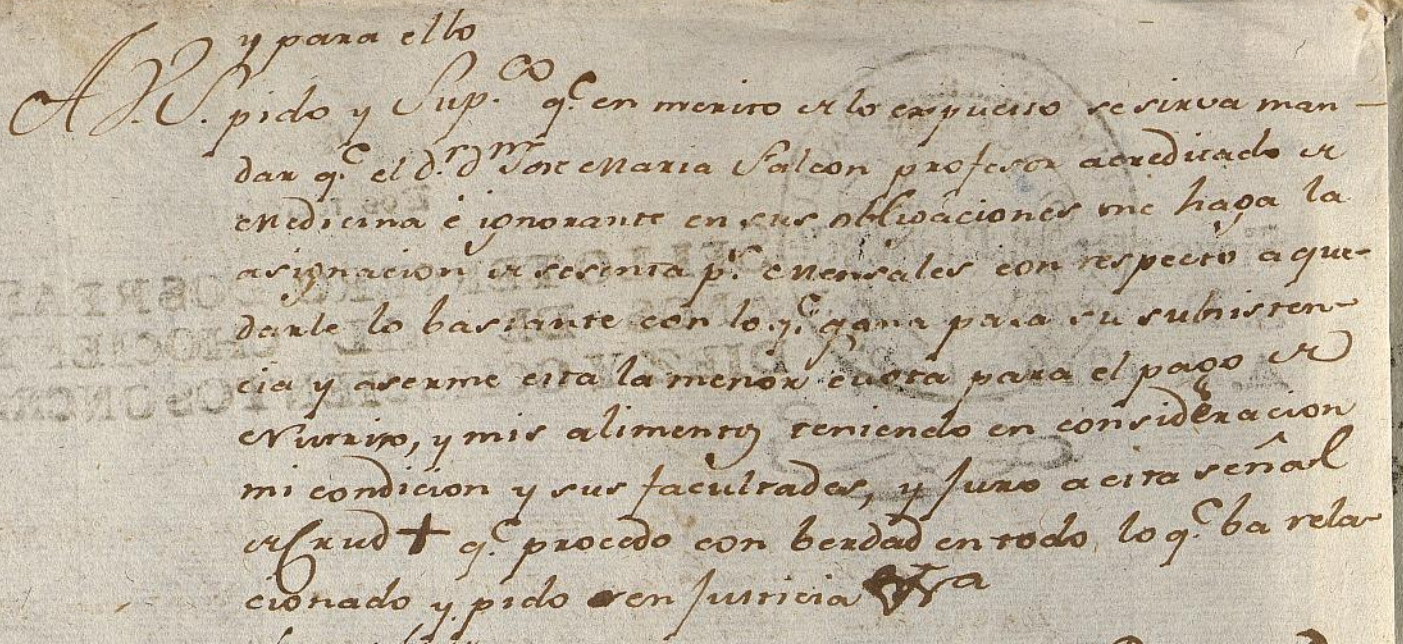 y para ello
A V.S. pido y Sup.co q.e en merito de lo expuesto se sirva man-
dar q.e el d.r d.n Jose Maria Falcon profesor acreditado de
Medicina é ignorante en sus obligaciones me haga la
asignacion de sesenta p.s Mensales con respecto a que-
darle lo bastante con lo q.e gana para su subsisten-
cia y aserme esta la menor cuota para el pago de
Nutris, y mis alimentos teniendo en consideracion
mi condicion y sus facultades, y Juro a esta señal
de Cruz + q.e procedo con berdad en todo lo q.e ba rela-
cionado y pido en Justicia